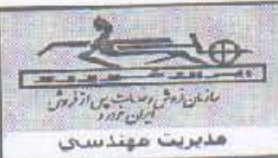 سازمان فروش و خدمات پس از فروش
ایران خودرو
مدیریت مهندسی